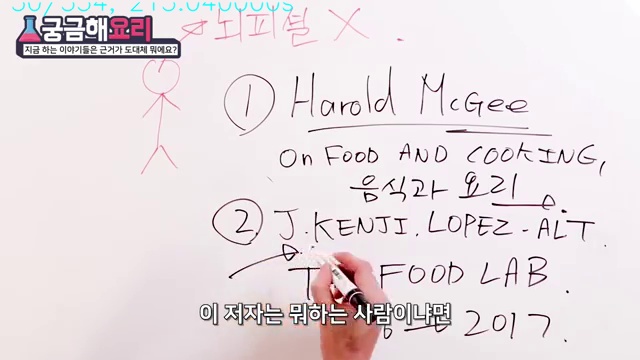 궁금해요리
지금 하는 이야기들은 근거가 도대체 뭐에요?
뇌피셜 X.
① Harold McGee
ON FOOD AND COOKING,
음식과 요리.
② J.KENJI.LOPEZ-ALT.
FOOD LAB.
2017.
이 저자는 뭐하는 사람이냐면